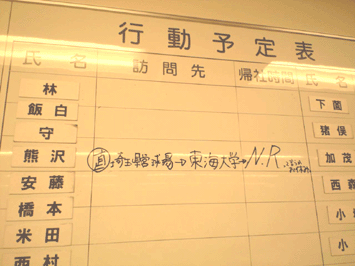 行動予定表
氏名 訪問先 帰社時間 氏名
林 下園
飯白 猪俣
守
熊沢 直 埼玉県営球場→東海大学→N.R. 加茂
安藤 西森
橋本 小
米田 小
西村